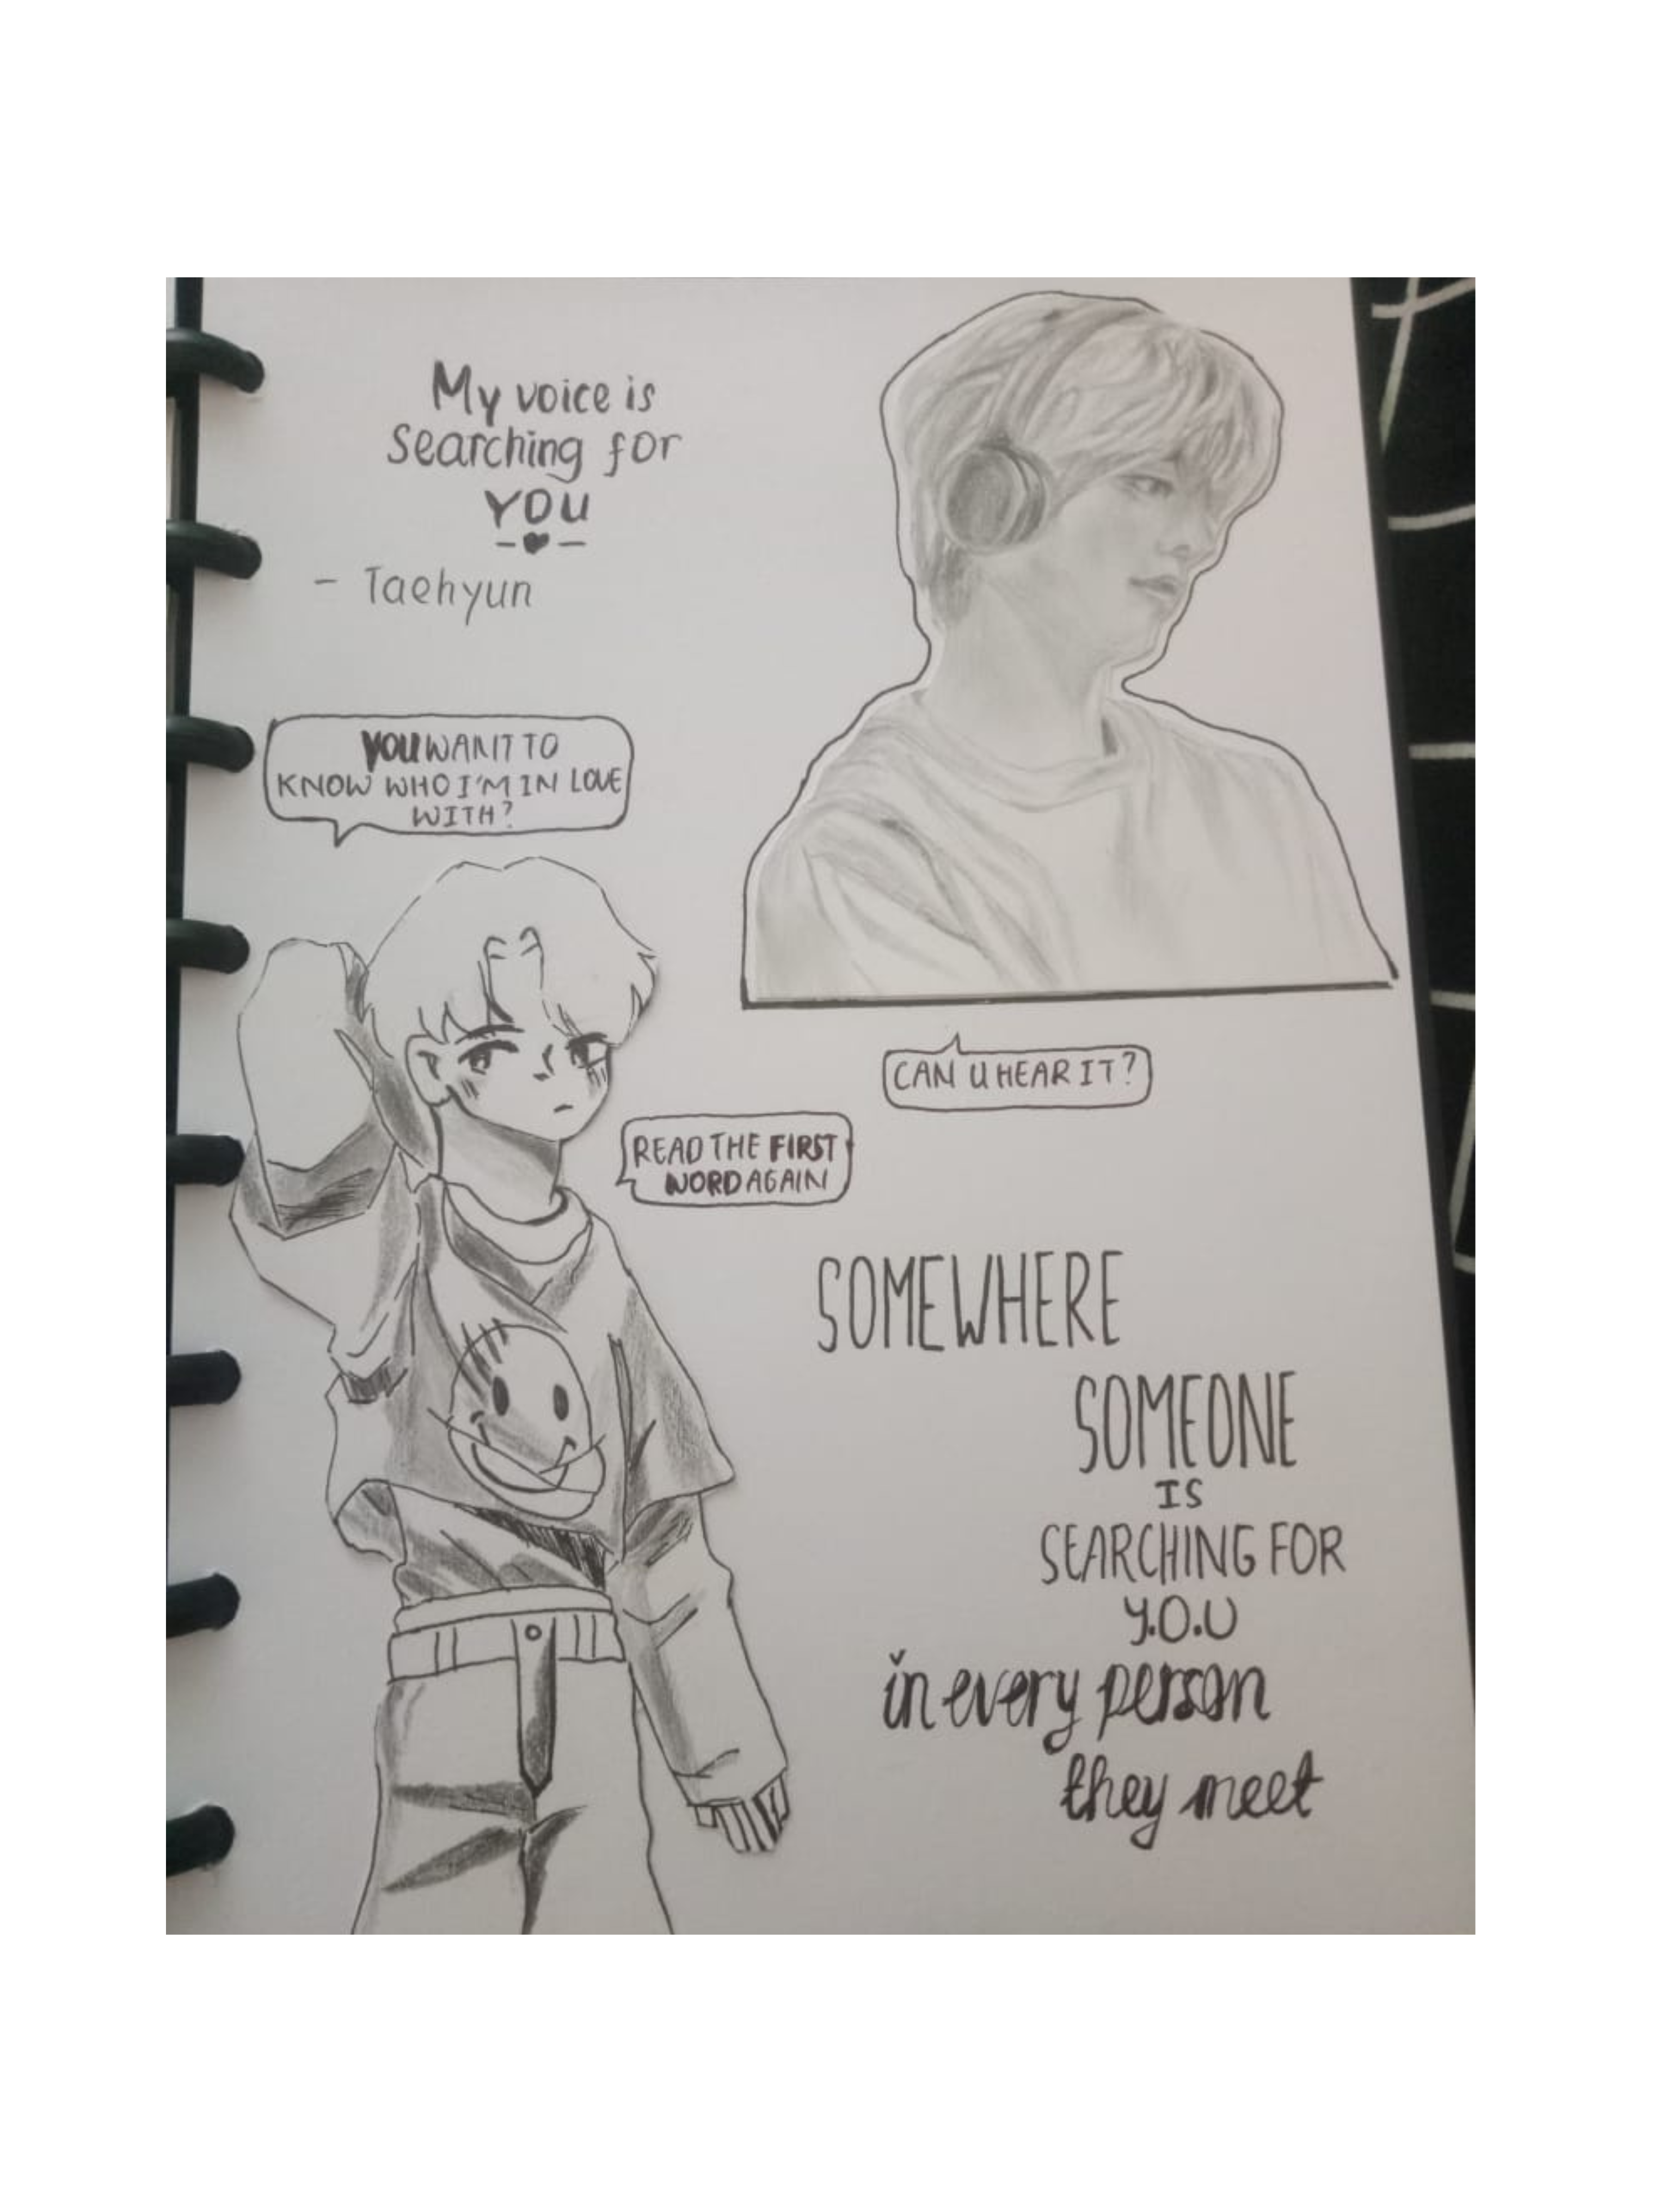 My voice is
Searching for
YOU
- Taehyun
YOU WANT TO
KNOW WHO I'M IN LOVE
WITH?
CAN U HEAR IT?
READ THE FIRST
WORD AGAIN
SOMEWHERE
SOMEONE
IS
SEARCHING FOR
Y.O.U
in every person
they meet